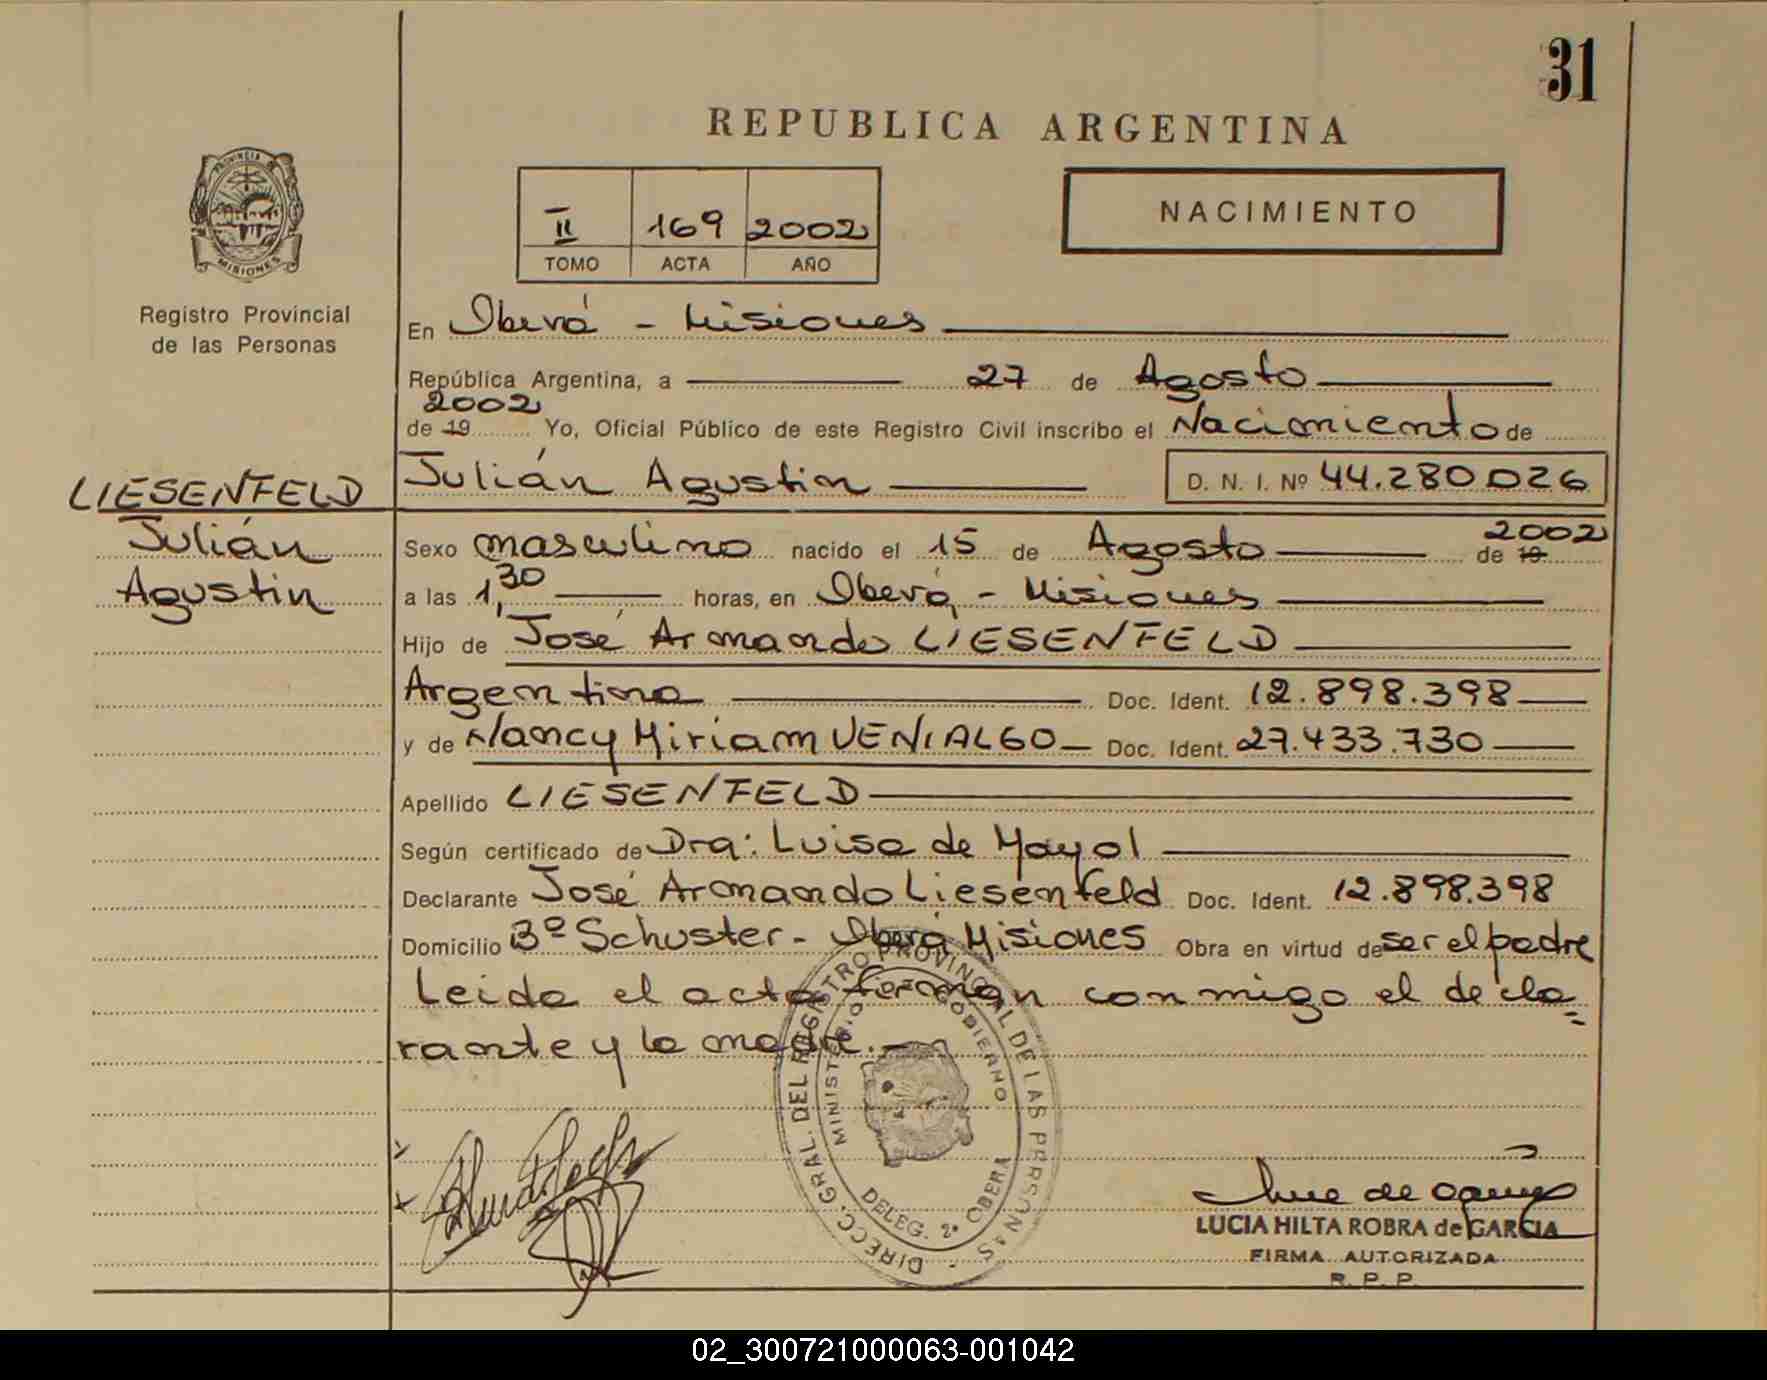 31
REPUBLICA ARGENTINA
PROVINCIA DE
MISIONES
Registro Provincial
de las Personas
II 169 2002
TOMO ACTA AÑO
NACIMIENTO
En Oberá - Misiones
República Argentina, a 27 de Agosto
2002
de 19 Yo, Oficial Público de este Registro Civil inscribo el Nacimiento de
Julián Agustin D. N. I. Nº 44.280.026
LIESENFELD
Julián
Agustin
2002
Sexo masculino nacido el 15 de Agosto de 19
a las 1,30 horas, en Oberá - Misiones
Hijo de José Armando LIESENFELD
Argentina Doc. Ident. 12.898.398
y de Nancy Miriam VENIALGO Doc. Ident. 27.433.730
Apellido LIESENFELD
Según certificado de Dra: Luisa de Mayol
Declarante José Armando Liesenfeld Doc. Ident. 12.898.398
Domicilio Bº Schuster - Oberá Misiones Obra en virtud de ser el padre
Leida el acta firman conmigo el decla=
rante y la madre.-
DIRECC. GRAL. DEL REGISTRO PROVINCIAL DE LAS PERSONAS
MINISTERIO GOBIERNO
DELEG. 2ª OBERA
LUCIA HILTA ROBRA de GARCIA
FIRMA AUTORIZADA
R. P. P.
02_300721000063-001042